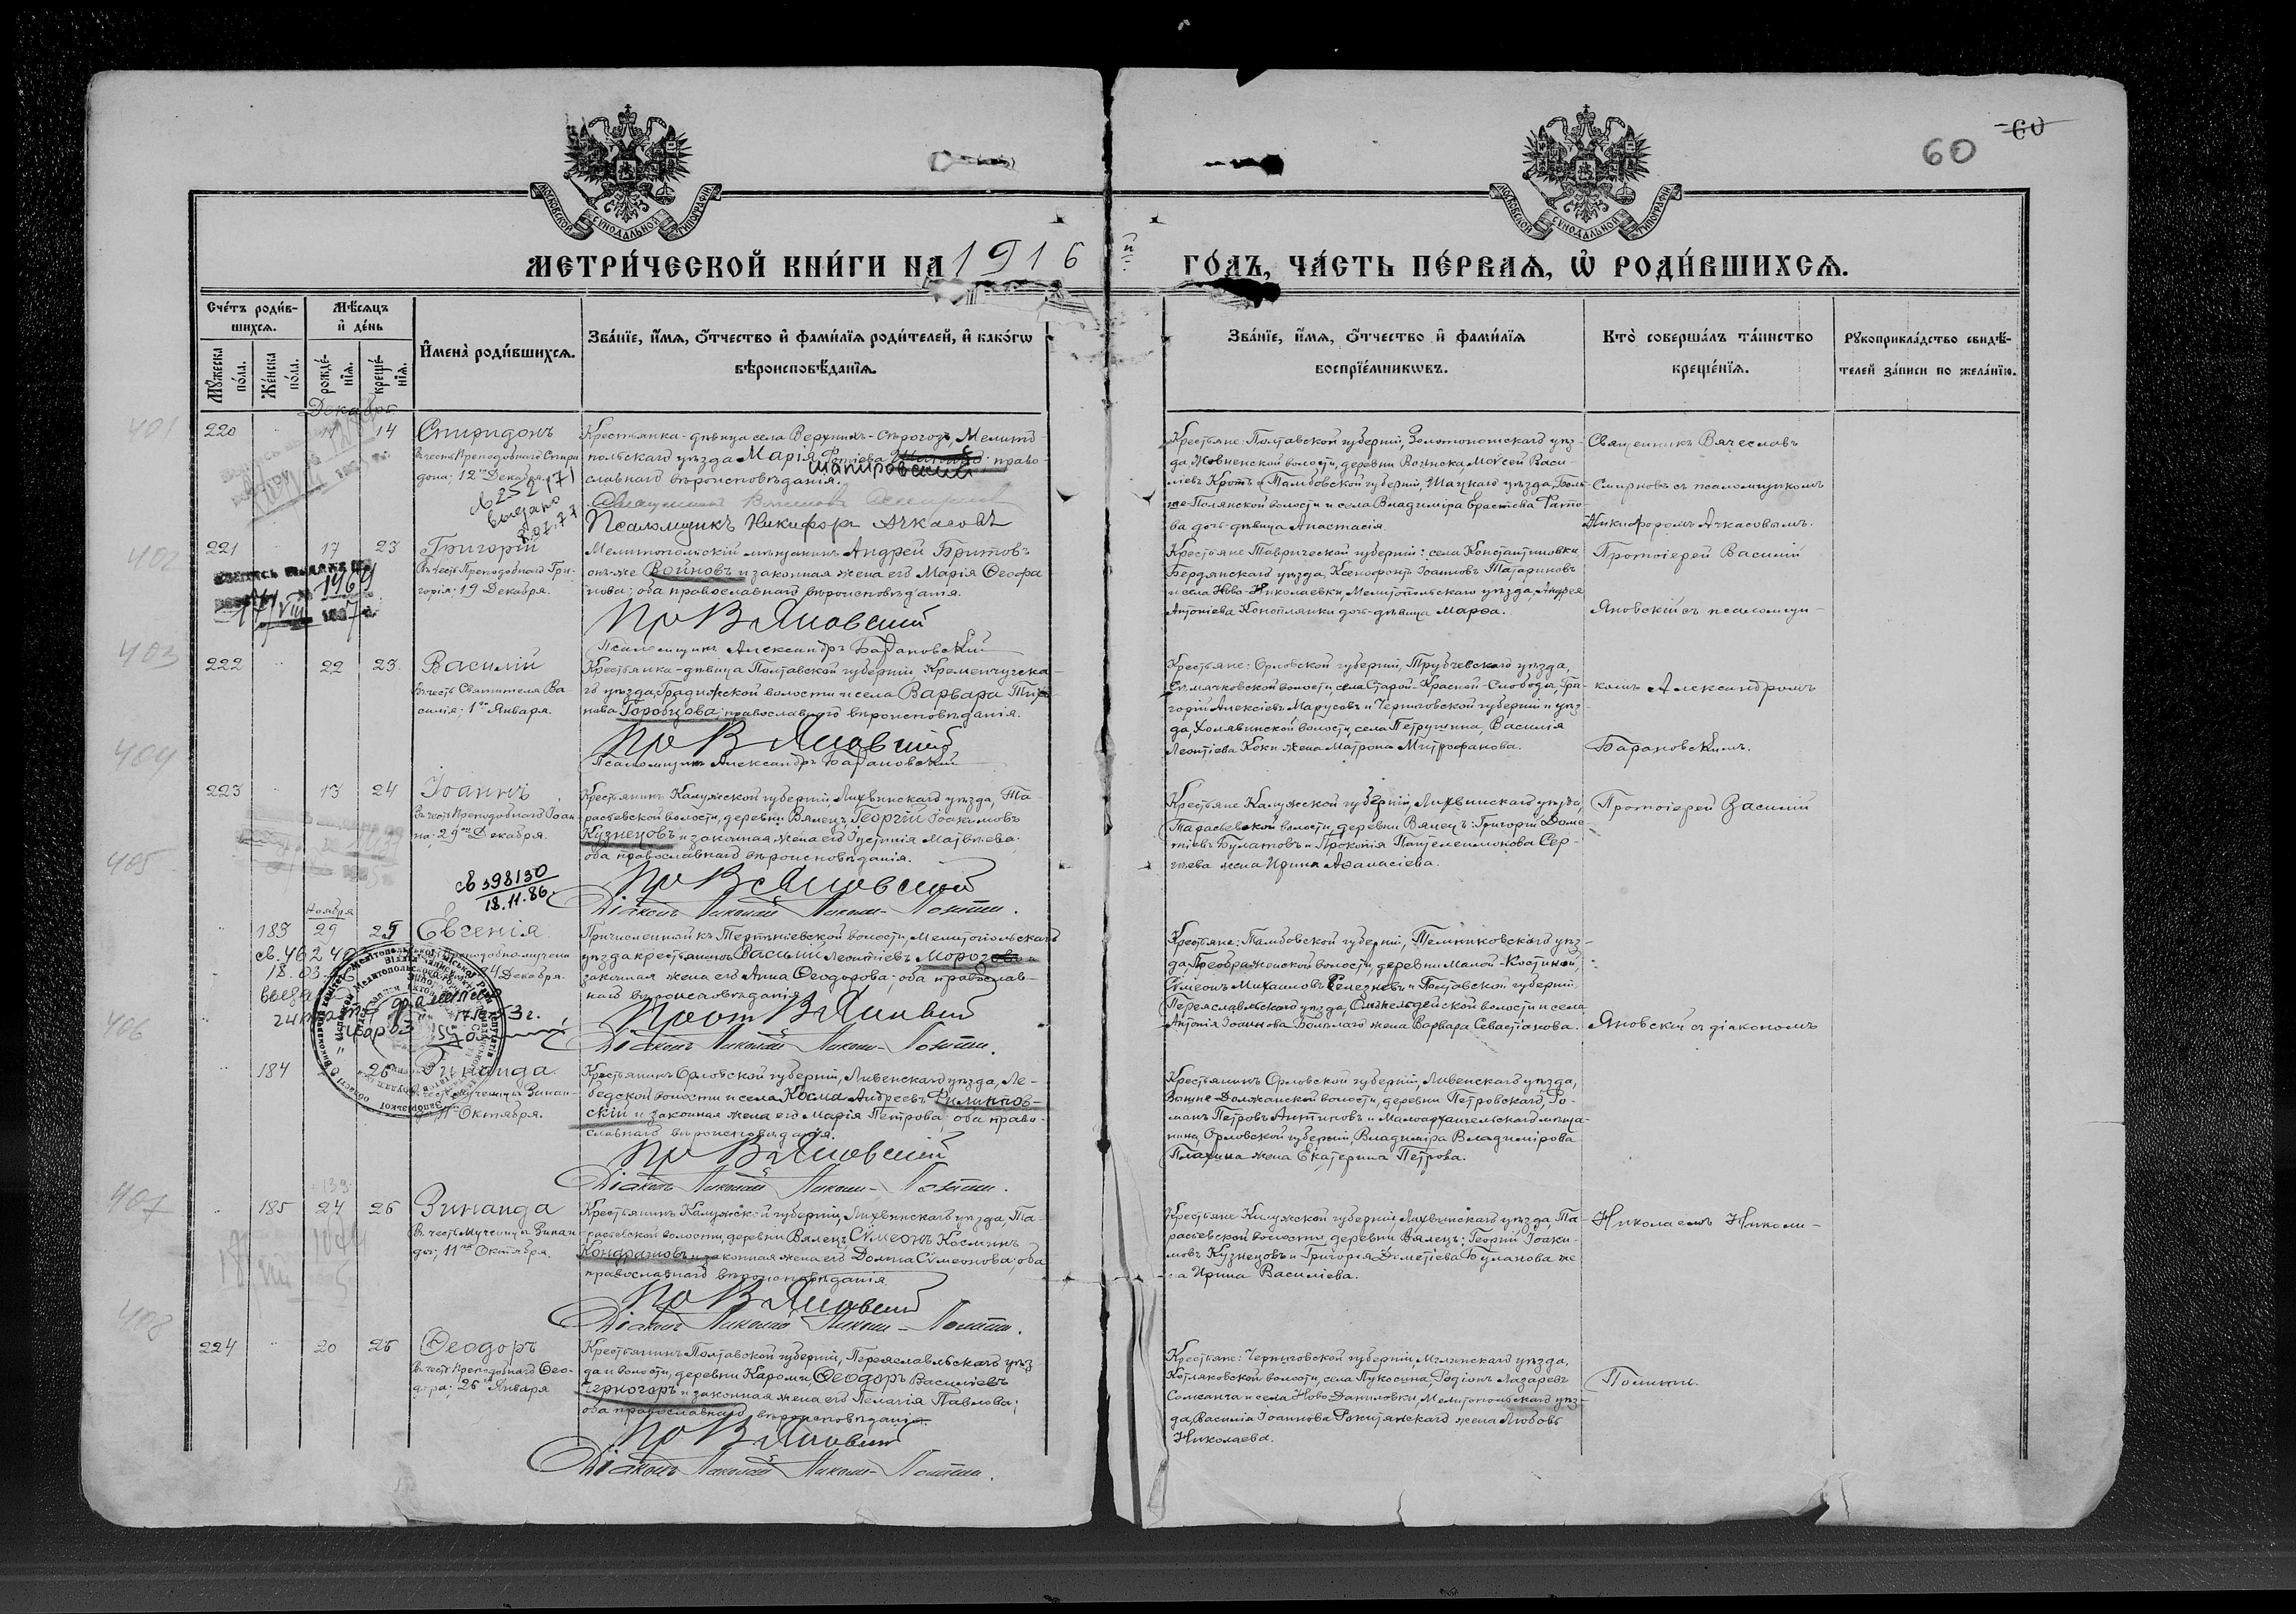 60
60
МОСКОВСКОЙ СѴНОДАЛЬНОЙ ТИПОГРАФІИ
МОСКОВСКОЙ СѴНОДАЛЬНОЙ ТИПОГРАФІИ
МЕТРИ́ЧЕСКОЙ КНИ́ГИ НА 1916 й ГО́ДЪ, ЧА́СТЬ ПЕ́РВАѦ, Ѡ҆ РОДИ́ВШИХСѦ.
Сче́тъ роди́в-
шихсѧ.
Мѣ́сѧцъ
и҆ де́нь
Мꙋ́жеска
по́ла.
Же́нска
по́ла.
рожде́-
нїѧ.
креще́-
нїѧ.
И҆мена̀ роди́вшихсѧ.
Зва́нїе, и҆́мѧ, ѻ҆́тчество и҆ фами́лїѧ роди́телей, и҆ како́гѡ
вѣроисповѣ́данїѧ.
Зва́нїе, и҆́мѧ, ѻ҆́тчество и҆ фами́лїѧ
воспрїе́мникѡвъ.
Кто̀ соверша́лъ та́инство
креще́нїѧ.
Рꙋкоприкла́дство свидѣ́-
телей за́писи по жела́нїю.
Декабрь
401
220 11 14 Спиридонъ
Въ честь Преподобнаго Спири
дона; 12го Декабря.
Крестьянка-дѣвица села Верхнихъ-Сѣрогозъ, Мелито
польскаго уѣзда Марія Фотіева православнаго
шапировский
славнаго вѣроисповѣданія.
Псаломщикъ Никифоръ Ачкасовъ
Крестьяне: Полтавской губерніи, Золотоношскаго уѣз-
да, Жовнинской волости, деревни Моѵсей Васи-
ліевъ Кротъ и Тамбовской губерніи, Шацкаго уѣзда, Боль
ше-Полянской волости и села Владиміра
ва дочь-дѣвица Анастасія.
Священникъ Вячеславъ
Смирновъ съ псаломщикомъ
Никифоромъ Ачкасовымъ.
402
221 17 23 Григорій
Въ честь Преподобнаго Гри-
горія; 19 Декабря.
Мелитопольскій мѣщанинъ Андрей Бритовъ
онъ-же Войновъ и законная жена его Марія Ѳеофа
нова; оба православнаго вѣроисповѣданія.
Пр В Яновскій
Псаломщикъ Александръ Барановскій
Крестьяне Таврической губерніи: села Константиновки
Бердянскаго уѣзда, Ксенофонтъ Іоанновъ Татариновъ
и села Ново-Николаевки, Мелитопольскаго уѣзда, Андрея
Антоніева Коноплянки дочь-дѣвица Марѳа.
Протоіерей Василій
Яновскій съ псаломщи-
403
222 22 23 Василій
Въ честь Святителя Ва
силія; 1го Января.
Крестьянка-дѣвица Полтавской губерніи, Кременчугска-
го уѣзда, Градижской волости и села Варвара
нова Горобцова; православнаго вѣроисповѣданія.
Пр В Яновскій
Псаломщикъ Александръ Барановскій
Крестьяне: Орловской губерніи, Трубчевскаго уѣзда,
волости, села Старой-Красной-Слободы, Гри
горій Алексіевъ Марусовъ и Черниговской губерніи и уѣз-
да, Холявинской волости, села Петрушина, Василія
Леонтіева Коки жена Матрона Митрофанова.
комъ Александромъ
Барановскимъ.
404
223 13 24 Іоаннъ
Въ честь Преподобнаго Іоан
на; 29го Декабря.
св 398130
18.11.86
Крестьянинъ Калужской губерніи, Лихвинскаго уѣзда, Та-
расьевской волости, деревни Вялецъ Георгій Іоакимовъ
Кузнецовъ и законная жена его Матвѣева;
оба православнаго вѣроисповѣданія.
Пр В Яновскій
Діаконъ Николай
Крестьяне Калужской губерніи, Лихвинскаго уѣзда,
Тарасьевской волости, деревни Вялецъ: Григорій Доме
тіевъ Булатовъ и Прокопія Пантелеимонова Сер-
гѣева жена Ирина Аѳанасіева.
Протоіерей Василій
405
Ноября
183 29 25 Евгенія
4 Декабря.
св. 46240
Причисленный къ Терпѣніевской волости, Мелитопольскаго
уѣзда крестьянинъ Василій Леонтіевъ Морозовъ и
законная жена его Анна Ѳеодорова; оба православ-
наго вѣроисповѣданія
Прот В Яновскій
Діаконъ Николай
Крестьяне: Тамбовской губерніи, Темниковскаго уѣз-
да, Преображенской волости, деревни Малой-
Сѵмеонъ Михаиловъ Селезневъ и Полтавской губерніи,
Переяславльскаго уѣзда, волости и села
Антонія Іоаннова жена Варвара Севастіанова.
Яновскій съ діакономъ
406
184 26 Зинаида
11го Октября.
Крестьянинъ Орловской губерніи, Ливенскаго уѣзда, Ле-
бедской волости и села Косма Андреевъ Филиппов-
скій и законная жена его Марія Петрова; оба право-
славнаго вѣроисповѣданія.
Пр В Яновскій
Діаконъ Николай
Крестьянинъ Орловской губерніи, Ливенскаго уѣзда,
Должанской волости, деревни Петровскаго, Ро-
манъ Петровъ Антиповъ и Малоархангельскаго мѣща-
нина, Орловской губерніи, Владиміра Владимірова
жена Екатерина Петрова.
407
185 24 26 Зинаида
Въ честь Мученицы Зинаи-
ды; 11го Октября.
Крестьянинъ Калужской губерніи, Лихвинскаго уѣзда, Та-
расьевской волости, деревни Вялецъ Сѵмеонъ Косминъ
Кондрашовъ и законная жена его Домна Сѵмеонова; оба
православнаго вѣроисповѣданія
Пр В Яновскій
Діаконъ Николай
Крестьяне Калужской губерніи, Лихвинскаго уѣзда, Та-
расьевской волости деревни Вялецъ: Георгій Іоаки-
мовъ Кузнецовъ и Григорія Дометіева Булатова же
на Ирина Василіева.
Николаемъ Николи-
408
224 20 26 Ѳеодоръ
Въ честь Преподобнаго Ѳео-
дора; 26го Января
Крестьянинъ Полтавской губерніи, Переяславльскаго уѣз
да и волости, деревни Ѳеодоръ Василіевъ
Черногоръ и законная жена его Пелагія Павлова;
оба православнаго вѣроисповѣданія.
Пр В Яновскій
Діаконъ Николай
Крестьяне: Черниговской губерніи, Мглинскаго уѣзда,
Котляковской волости, села Родіонъ Лазаревъ
и села Ново-Даниловки, Мелитопольскаго уѣз-
да, Василія Іоаннова Рокитянскаго жена Любовь
Николаева.